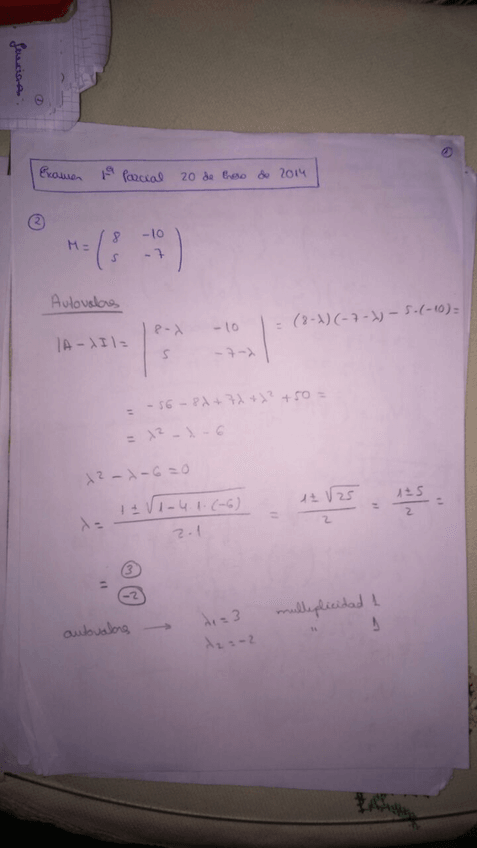 ②
①
Examen 1º Parcial 20 de Enero de 2014
②
M = ( 8 -10
5 -7 )
Autovalores
|A - λI| = | 8-λ -10
5 -7-λ | = (8-λ)(-7-λ) - 5·(-10) =
= -56 - 8λ + 7λ + λ² + 50 =
= λ² - λ - 6
λ² - λ - 6 = 0
λ = (1 ± √(1 - 4·1·(-6))) / (2·1) = (1 ± √25) / 2 = (1 ± 5) / 2 =
= 3
-2
autovalores → λ₁ = 3 multiplicidad 1
λ₂ = -2 " 1